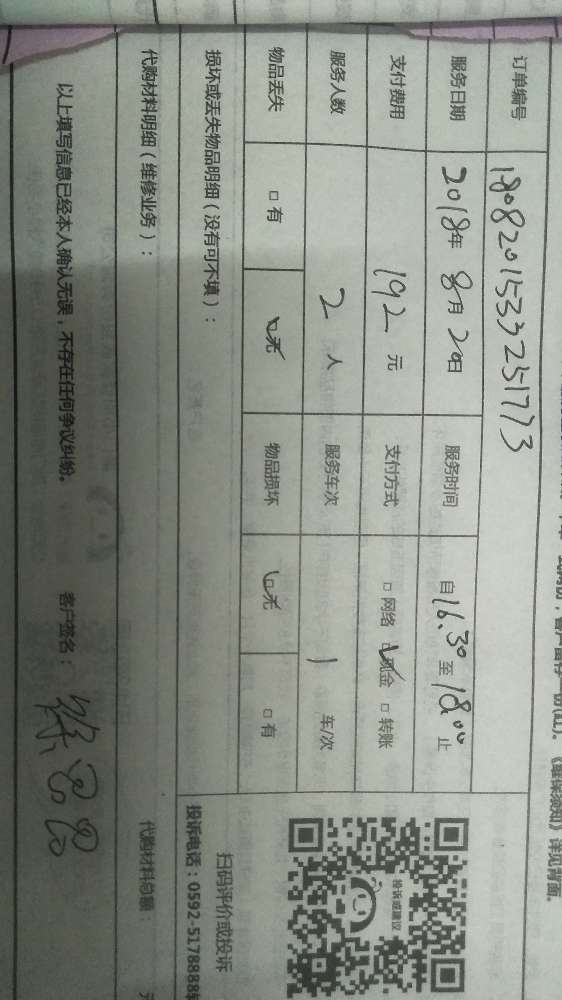 式两份，客户留存一份(红)。《维保须知》详见背面。
订单编号 1808201533251773
服务日期 2018年 8月 20日 服务时间 自 16.30 至 18.00 止
支付费用 192 元 支付方式 □ 网络 ☑ 现金 □ 转账
服务人数 2 人 服务车次 1 车/次
物品丢失 □ 有 ☑ 无 物品损坏 ☑ 无 □ 有
投诉或建议
扫码评价或投诉
投诉电话：0592-5178888转
损坏或丢失物品明细（没有可不填）：
代购材料明细（维修业务）： 代购材料总额：
以上填写信息已经本人确认无误，不存在任何争议纠纷。 客户签名：